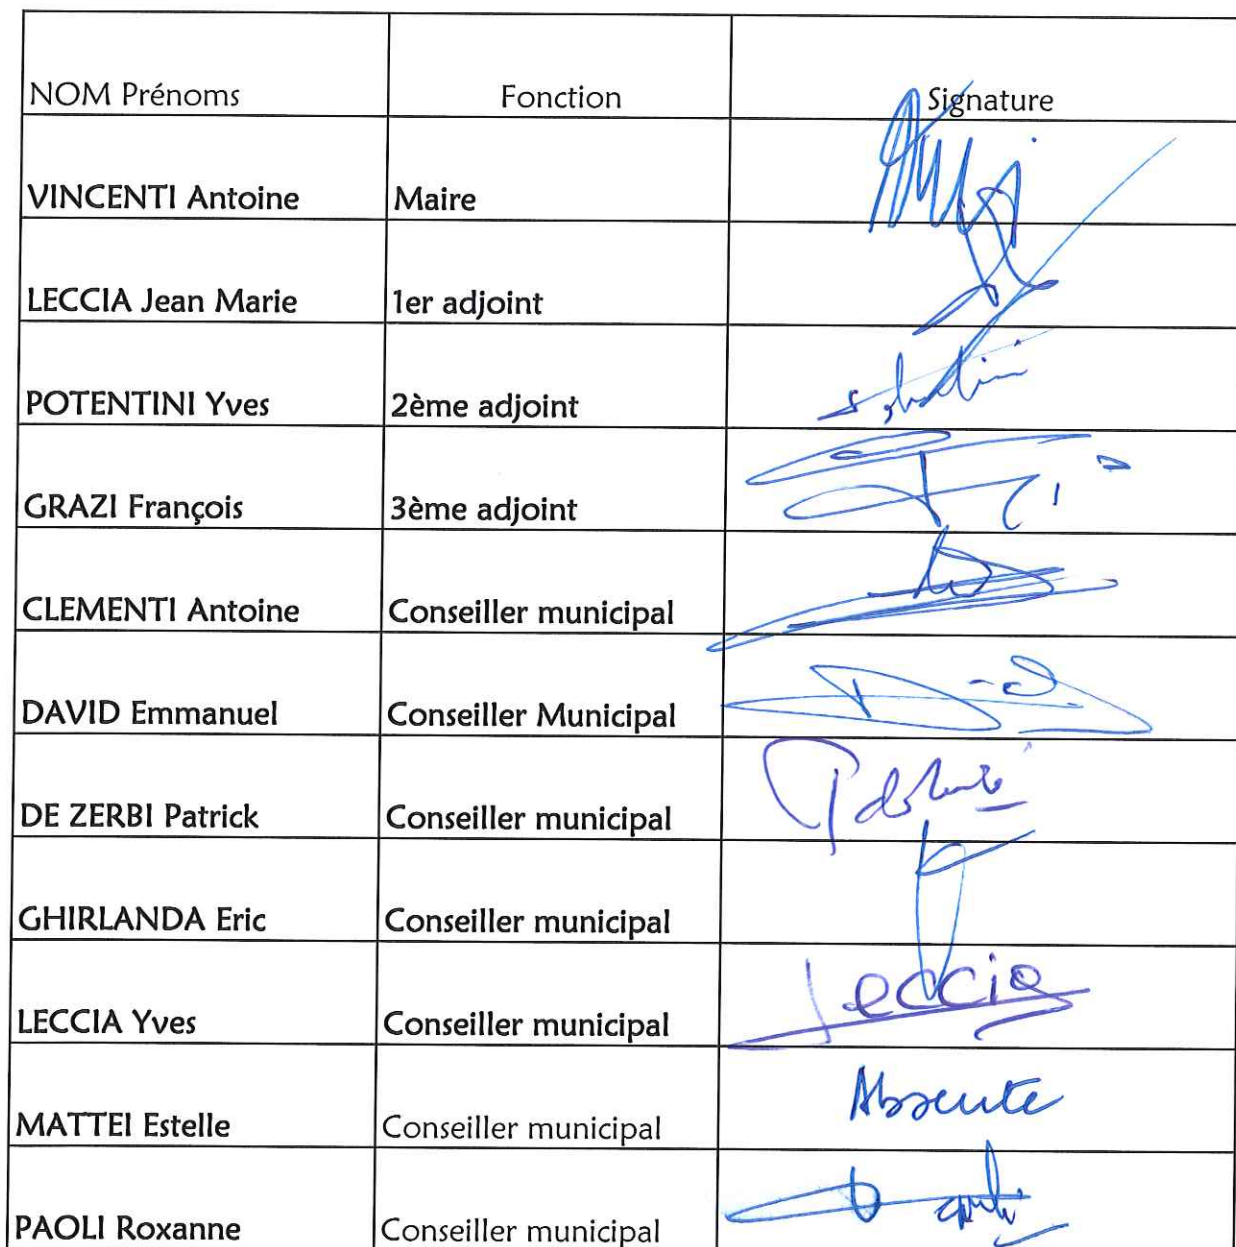 NOM Prénoms Fonction Signature
VINCENTI Antoine Maire
LECCIA Jean Marie 1er adjoint
POTENTINI Yves 2ème adjoint
GRAZI François 3ème adjoint
CLEMENTI Antoine Conseiller municipal
DAVID Emmanuel Conseiller Municipal
DE ZERBI Patrick Conseiller municipal
GHIRLANDA Eric Conseiller municipal
LECCIA Yves Conseiller municipal Leccia
MATTEI Estelle Conseiller municipal Absente
PAOLI Roxanne Conseiller municipal